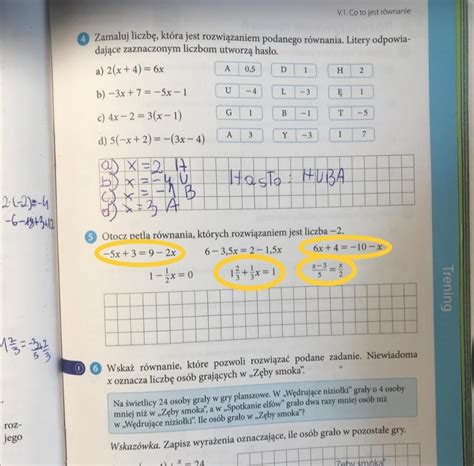 V.1. Co to jest równanie
4 Zamaluj liczbę, która jest rozwiązaniem podanego równania. Litery odpowia-
dające zaznaczonym liczbom utworzą hasło.
a) 2(x + 4) = 6x A 0,5 D 1 H 2
b) −3x + 7 = −5x − 1 U −4 L −3 Ę 1
c) 4x − 2 = 3(x − 1) G 1 B −1 T −5
d) 5(−x + 2) = −(3x − 4) A 3 Y −3 I 7
a) x = 2 H
b) x = −4 U Hasło: HUBA
c) x = −1 B
d) x = 3 A
2·(−2)=−4
5 Otocz pętlą równania, których rozwiązaniem jest liczba −2.
−5x + 3 = 9 − 2x 6 − 3,5x = 2 − 1,5x 6x + 4 = −10 − x
1 − 1/2x = 0 1 2/3 + 1/3x = 1 x−3/5 = x/2
Trening
6 Wskaż równanie, które pozwoli rozwiązać podane zadanie. Niewiadoma
x oznacza liczbę osób grających w „Zęby smoka”.
Na świetlicy 24 osoby grały w gry planszowe. W „Wędrujące niziołki” grało o 4 osoby
mniej niż w „Zęby smoka”, a w „Spotkanie elfów” grało dwa razy mniej osób niż
w „Wędrujące niziołki”. Ile osób grało w „Zęby smoka”?
Wskazówka. Zapisz wyrażenia oznaczające, ile osób grało w pozostałe gry.
roz-
jego